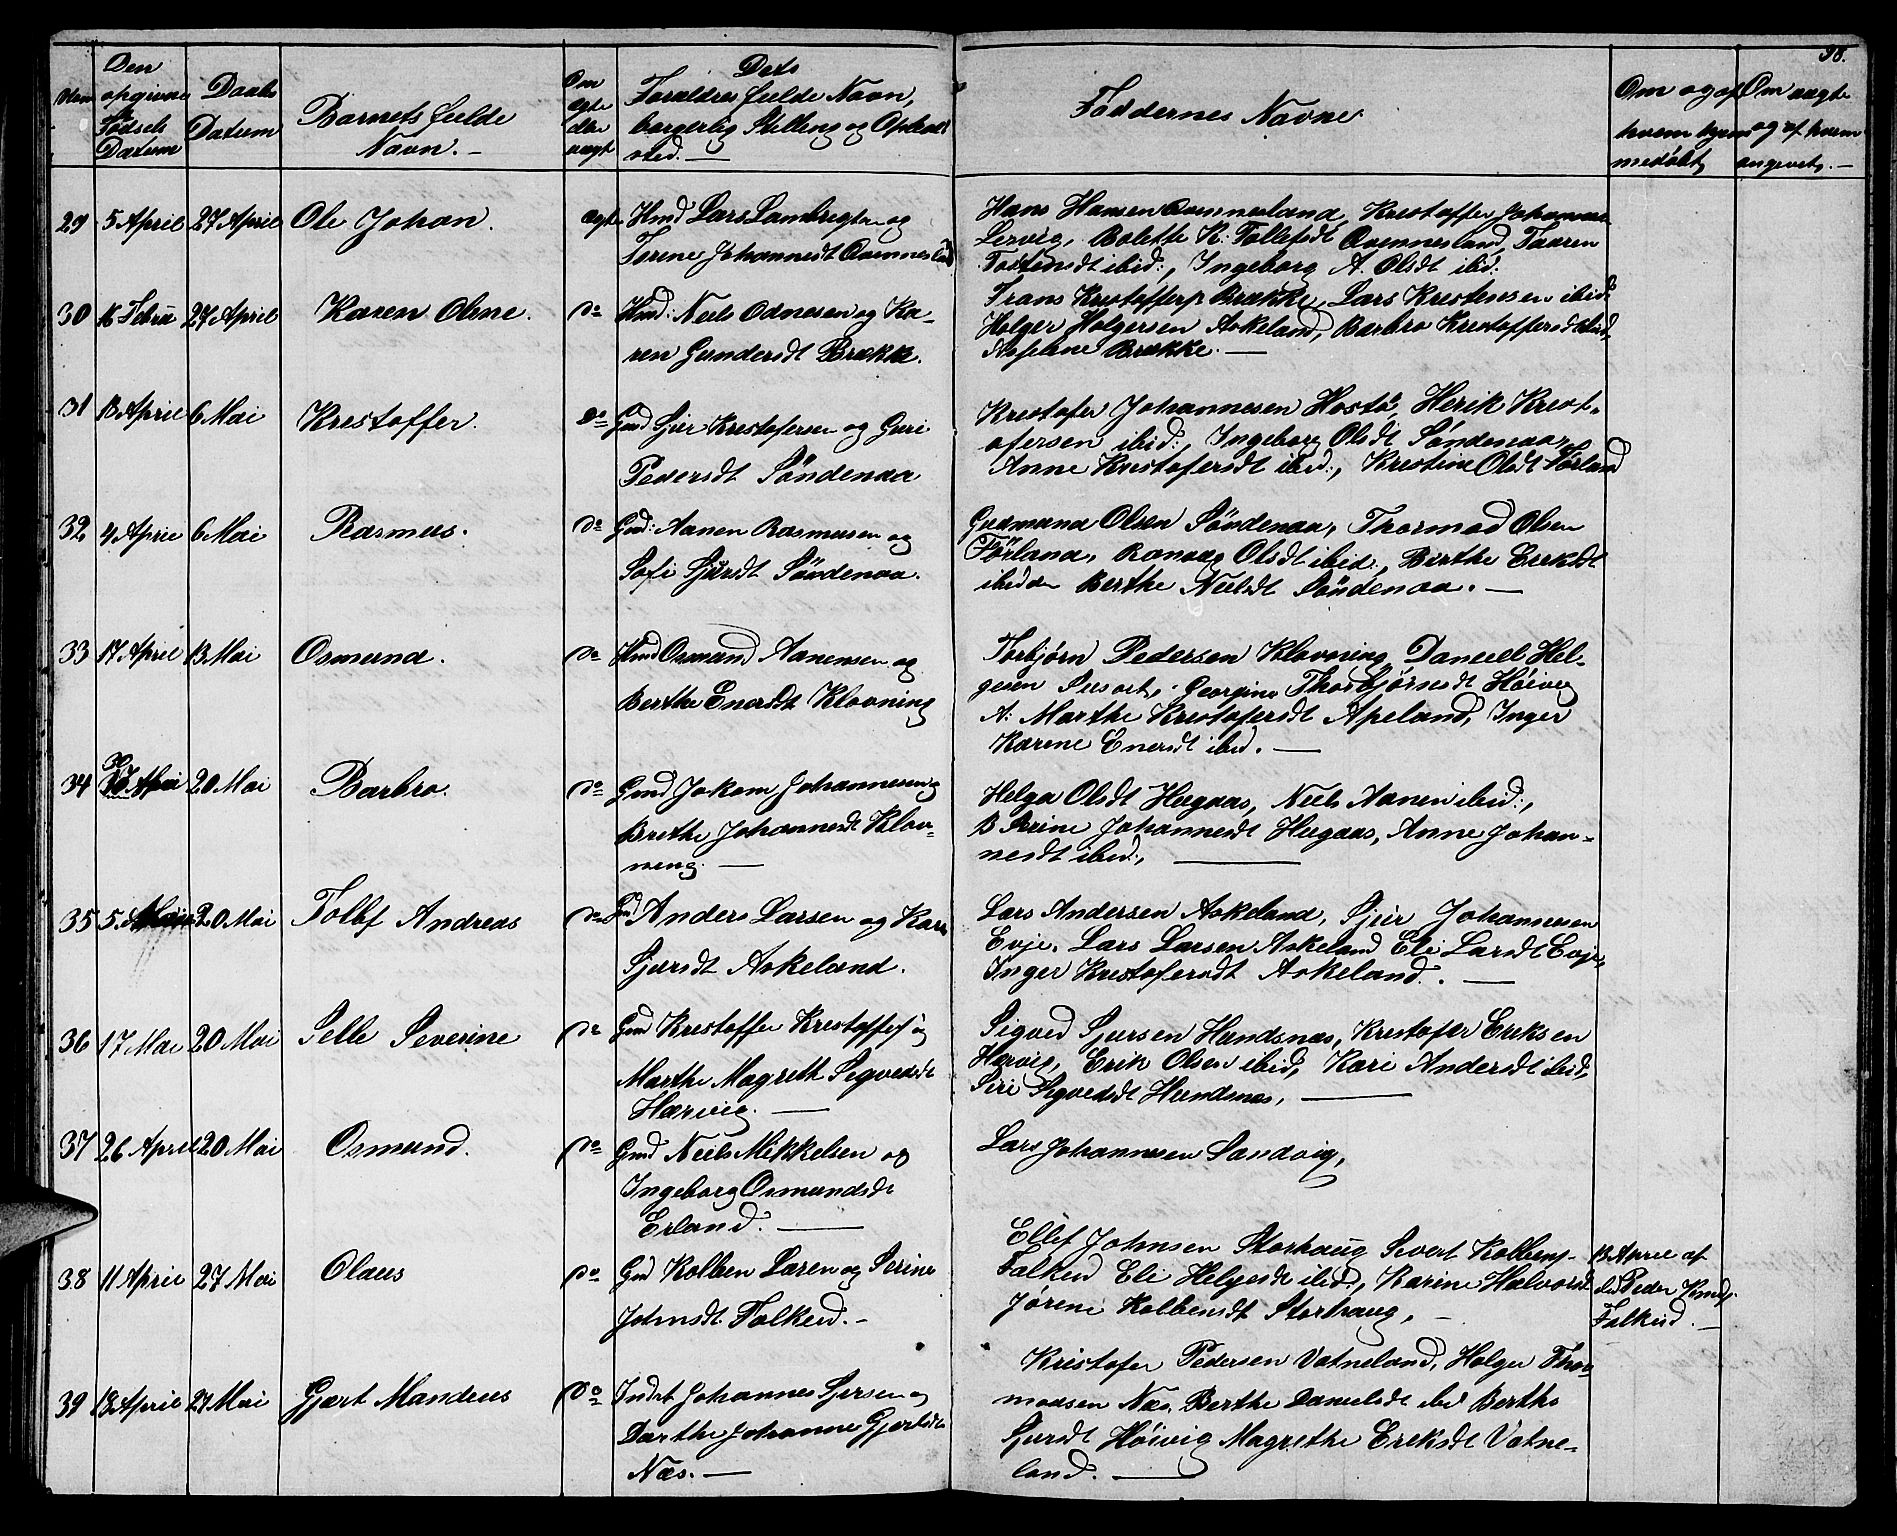 38.
Den opgivne Fødsels Datum
Daabs Datum
Barnets fulde Navn. -
Om ægte eller uægt
Dets Forældres fulde Navn, borgerlig Stilling og Opholdsted. -
Faddernes Navne
Om og af hvem hjemmedøbt
Om uægte og af hvem angivet. -
29 5 April 27 April Ole Johan. ægte Hmd Lars Lambregtsen og
Torine Johannesdt Qvennesland
Hans Hansen Qvennesland, Krestoffer Johannes
Lervig, Bolette K: Tollefsdt Qvennesland, Taaren
Tostensdt ibid:, Ingeborg A. Olsdt ibid.
30 16 Febru 27 April Karen Oline. do Hmd: Neels Odnesen og Ka-
ren Gundersdt Brække.
Frans Krestoffers Brække, Lars Krestensen ibid:
Holger Holgersen Askeland, Barbro Krestoffersdt ibid,
Asseline Brække. -
31 13 April 6 Mai Krestoffer. do Gmd Sjur Krestofersen og Guri
Pedersdt Søndenaa
Krestofer Johannesen Hostø, Herik Krest-
ofersen ibid:, Ingeborg Olsdt Søndenaa,
Anne Krestofersdt ibid:, Krestine Olsdt Førland
32 4 April 6 Mai Rasmus. do Gmd: Aanen Rasmusen og
Sofi Sjursdt Søndenaa.
Gudmund Olsen Søndenaa, Thormod Olsen
Førland, Ronnaug Olsdt ibid:, Birthe Ereksdt
ibidem Berthe Neelsdt Søndenaa. -
33 17 April 13 Mai Osmund. do Hmd Osmund Aanensen og
Berthe Enersdt Klovning
Torbjørn Pedersen Klovning Daneel Hel-
gesen Susort, Georgine Thorbjørnsdt Høivig
A: Marthe Krestofersdt Apeland, Inger
Karene Enersdt ibid. -
34 30 April 20 Mai Barbro. do Gmd Jokom Johannesen og
Brethe Johannesdt Klov-
neng. -
Helga Olsdt Hugaas, Neels Aanen ibid:,
B Serine Johannesdt Hugaas, Anne Johan-
nesdt ibid:, -
35 5 Mai 20 Mai Tollef Andreas do Gmd Anders Larsen og Kari
Sjursdt Askeland.
Lars Andersen Askeland, Sjur Johannesen
Evje, Lars Larsen Askeland Eli Larsdt Evje,
Inger Krestofersdt Askeland. -
36 17 Mai 20 Mai Selle Severine do Gmd Krestoffer Krestoffers og
Marthe Magreth Segvedsdt
Hærvig. -
Sigved Sjursen Hundsnes, Krestofer Ereksen
Hervig, Erik Olsen ibid, Kari Andersdt ibid,
Seri Segvedsdt Hundsnes, -
37 26 April 20 Mai Osmund. do Gmd Neels Mikkelsen og
Ingeborg Osmundsdt
Erland. -
Lars Johannesen Sandvig,
38 11 April 27 Mai Olaus do Gmd Kolben Larsen og Serine
Johnsdt Falkeid. -
Ellef Johnsen Storhaug Severt Kolbens-
Falkeid Eli Helgesdt ibid:, Karine Halvorsdt
Jørene Kolbensdt Storhaug, -
13 April af
Peder Knuds
Falkeid. -
39 18 April 27 Mai Gjert Mandius do Indst Johannes Sjursen og
Dorthe Johanne Gjertsdt
Næs. -
Kristofer Pedersen Vatneland, Holger Thor-
modsen Næs, Berthe Danielsdt ibid Berthe
Sjursdt Høivig Magrethe Ereksdt Vatne-
land. -